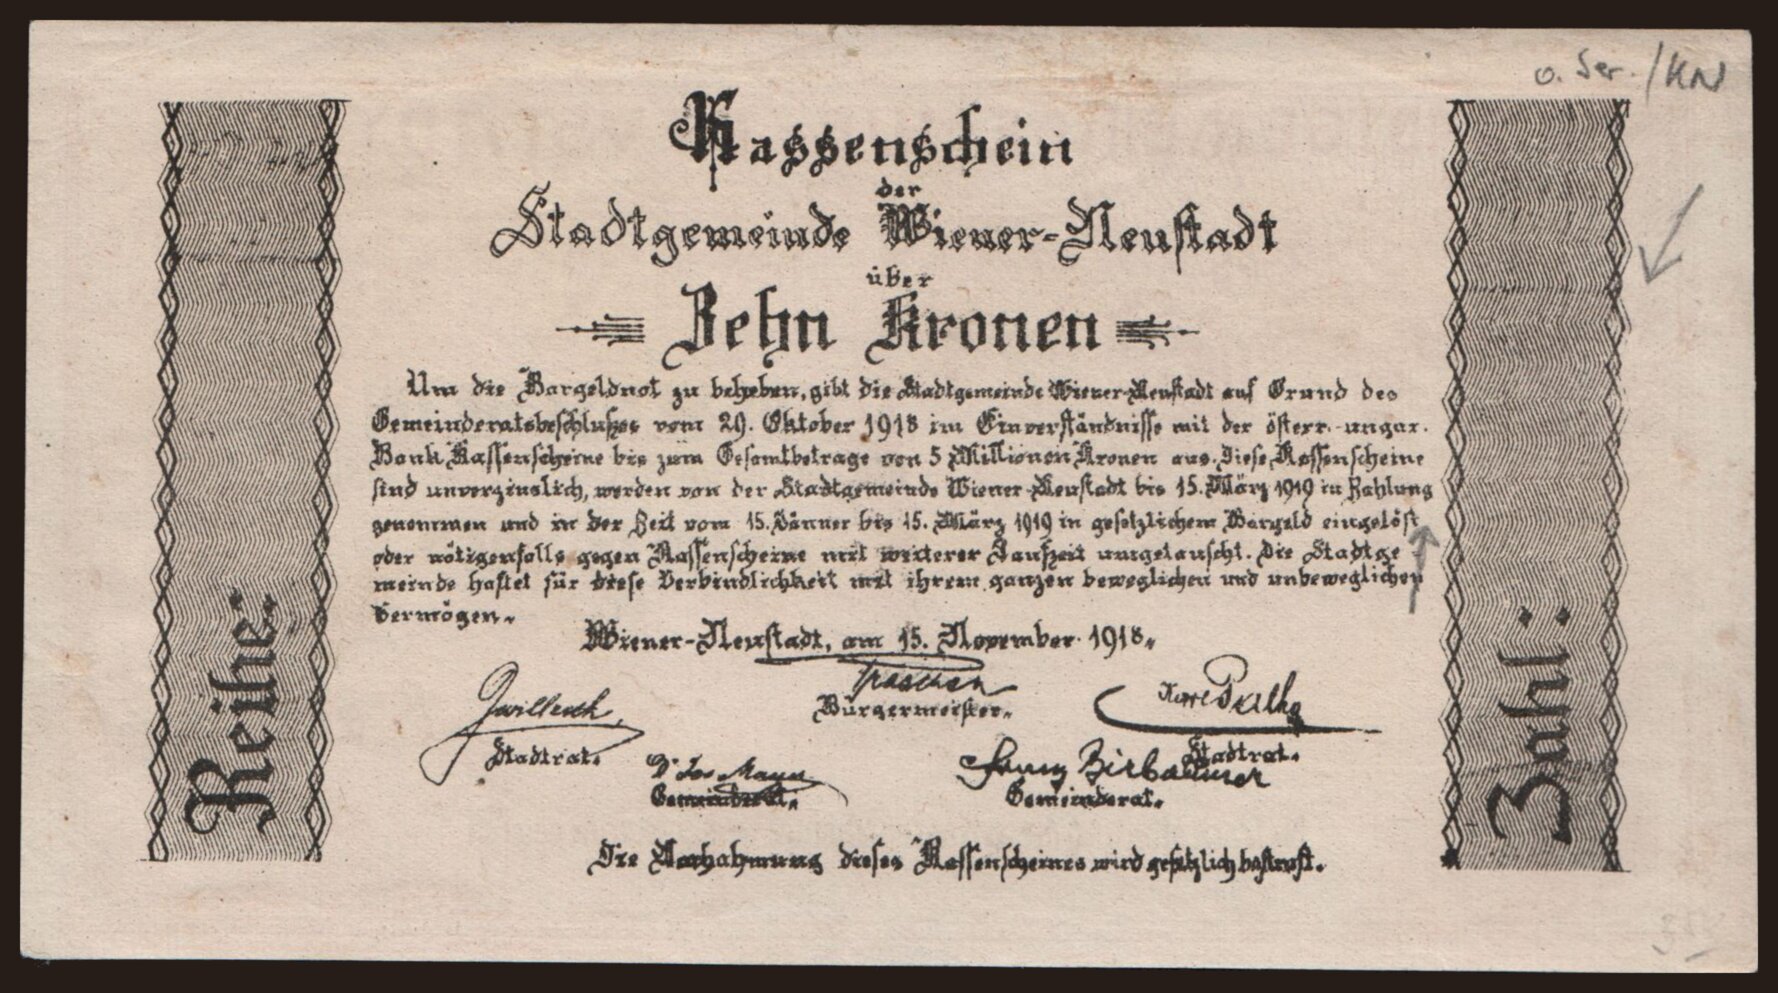 o. Ser. / KN
Kassenschein
der
Stadtgemeinde Wiener-Neustadt
über
Zehn Kronen
Um die Bargeldnot zu beheben, gibt die Stadtgemeinde Wiener-Neustadt auf Grund des
Gemeinderatsbeschlußes vom 29. Oktober 1918 im Einverständnisse mit der österr.-ungar.
Bank Kassenscheine bis zum Gesamtbetrage von 5 Millionen Kronen aus. Diese Kassenscheine
sind unverzinslich, werden von der Stadtgemeinde Wiener-Neustadt bis 15. März 1919 in Zahlung
genommen und in der Zeit vom 15. Jänner bis 15. März 1919 in gesetzlichem Bargeld eingelöst
oder nötigenfalls gegen Kassenscheine mit weiterer Laufzeit umgetauscht. Die Stadtge-
meinde haftet für diese Verbindlichkeit mit ihrem ganzen beweglichen und unbeweglichen
Vermögen.
Wiener-Neustadt, am 15. November 1918.
Bürgermeister.
Stadtrat.
Stadtrat.
Franz Birbaumer
Gemeinderat.
Gemeinderat.
Die Nachahmung dieses Kassenscheines wird gesetzlich bestraft.
Reihe:
Zahl: